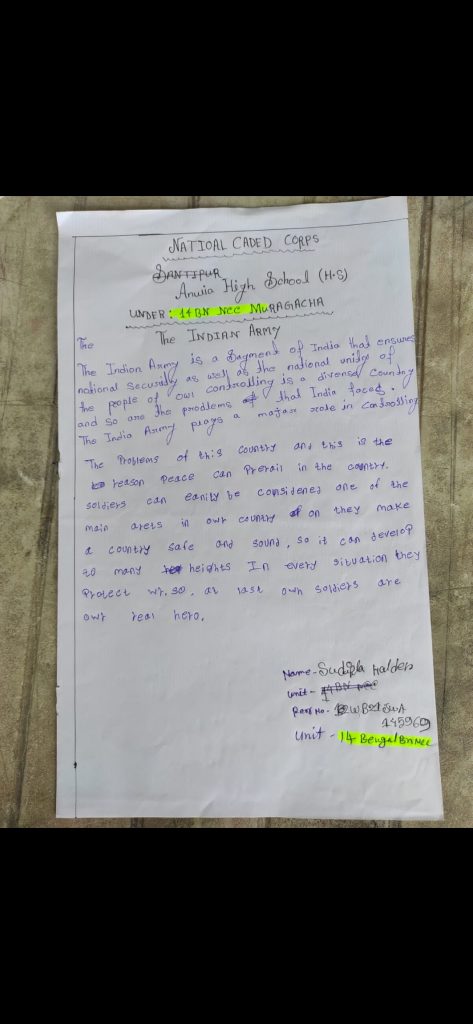 NATIOAL CADED CORPS
SANTIPUR
Anuia High School (H.S)
UNDER: 14 BN NCC MURAGACHA
The INDIAN ARMY
The
The Indian Army is a Dayment of India that ensures
national Security as well as the national unity of
the people of own controlling is a diversed Country
and so are the problems of that India faces.
The India Army plays a major role in Controlling
The Problems of this country and this is the
reason peace can Prerail in the country.
soldiers can eanily be considened one of the
main arets in own country on they make
a country safe and sound, so it can develop
to many heights In every situation they
Protect wr. so, at last own soldiers are
own real hero.
Name - Sudipta Halder
Unit - 14 BN NCC
No -
145969
Unit - 14 Bengal Bn NCC